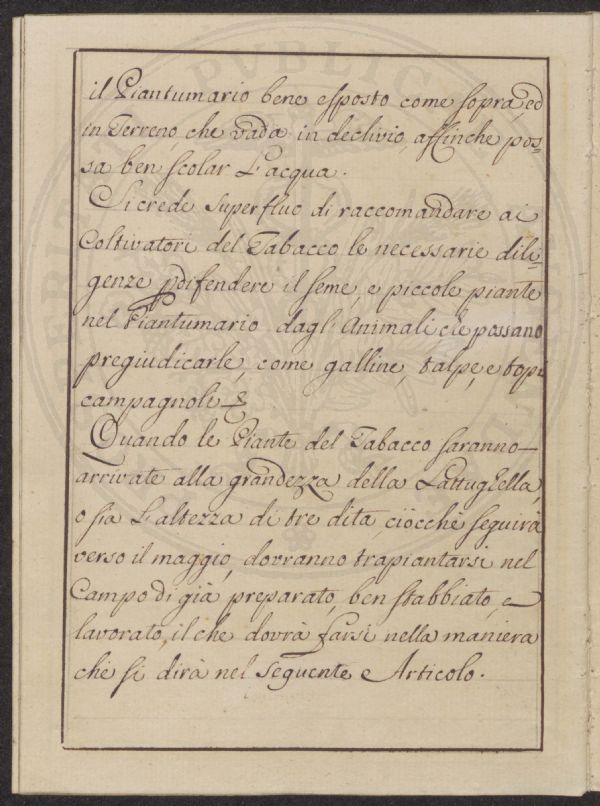 il Piantumario bene esposto come sopra, ed
in Terreno, che vada in declivio, affinche pos=
sa ben scolar l'acqua.
Si crede superfluo di raccomandare ai
Coltivatori del Tabacco le necessarie dili=
genze p difendere il seme, e piccole piante
nel Piantumario dagl'Animali che possano
pregiudicarle, come galline, talpe, e topi
campagnoli
Quando le Piante del Tabacco saranno
arrivate alla grandezza della Lattughella,
o sia l'altezza di tre dita, ciocchè seguirà
verso il maggio, dovranno trapiantarsi nel
Campo di già preparato, ben stabbiato, e
lavorato, il che dovrà farsi nella maniera
che si dirà nel seguente Articolo.